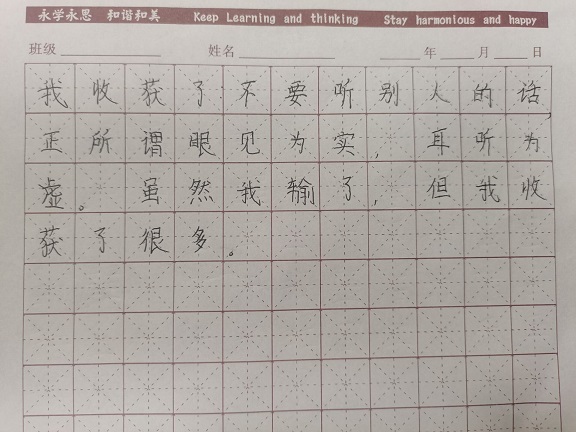 永学永思 和谐和美 Keep Learning and thinking Stay harmonious and happy
班级 姓名 年 月 日
我收获了不要听别人的话,
正所谓眼见为实,耳听为
虚。虽然我输了,但我收
获了很多。